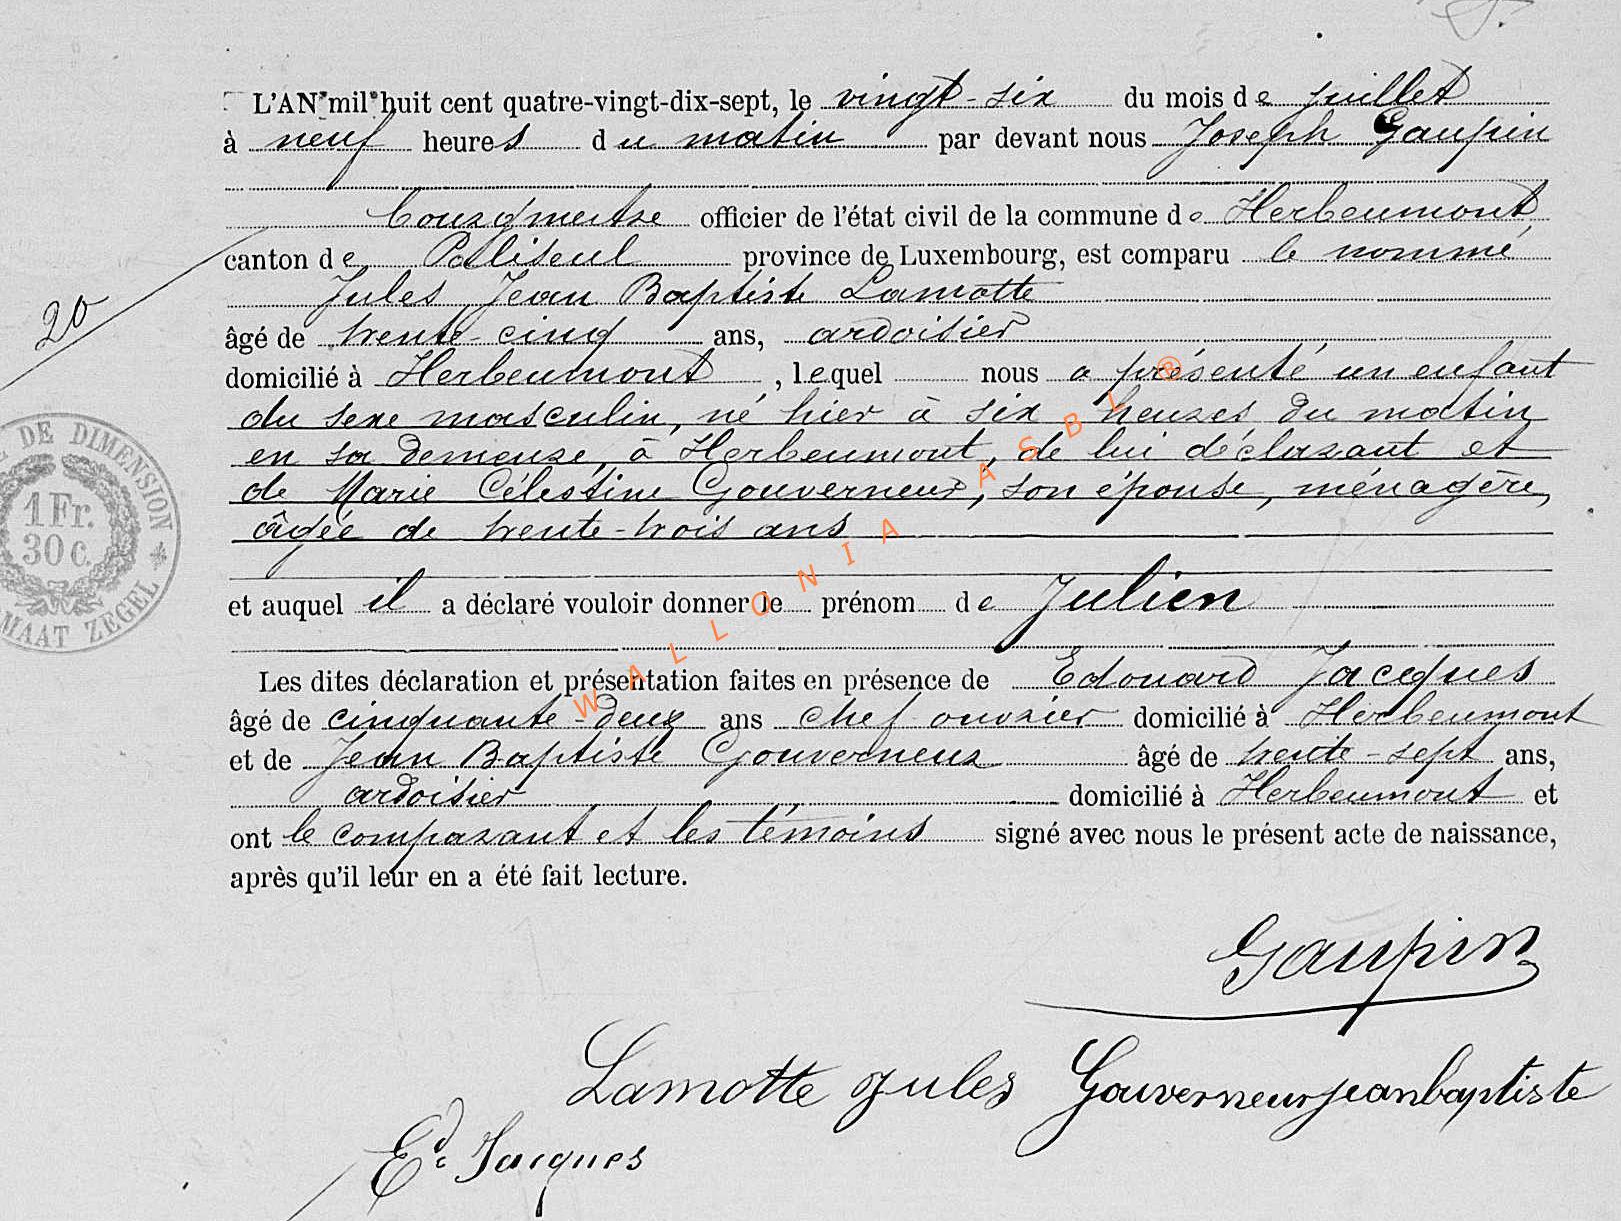 L'AN mil huit cent quatre-vingt-dix-sept, le vingt-six du mois de juillet
à neuf heures du matin par devant nous Joseph Gaupin
Bourgmestre officier de l'état civil de la commune de Herbeumont,
canton de Paliseul province de Luxembourg, est comparu le nommé
Jules Jean Baptiste Lamotte
20
âgé de trente-cinq ans, ardoisier
domicilié à Herbeumont, lequel nous a présenté un enfant
du sexe masculin, né hier à six heures du matin
en sa demeure, à Herbeumont, de lui déclarant et
de Marie Célestine Gouverneur, son épouse, ménagère,
âgée de trente-trois ans
et auquel il a déclaré vouloir donner le prénom de Julien
Les dites déclaration et présentation faites en présence de Edouard Jacques
âgé de cinquante-deux ans chef ouvrier domicilié à Herbeumont
et de Jean Baptiste Gouverneur âgé de trente-sept ans,
ardoisier domicilié à Herbeumont et
ont le comparant et les témoins signé avec nous le présent acte de naissance,
après qu'il leur en a été fait lecture.
Gaupin
Lamotte jules Gouverneur jeanbaptiste
Ed. Jacques
DE DIMENSION
1 Fr.
30 c.
MAAT ZEGEL
WALLONIA ASBL ®